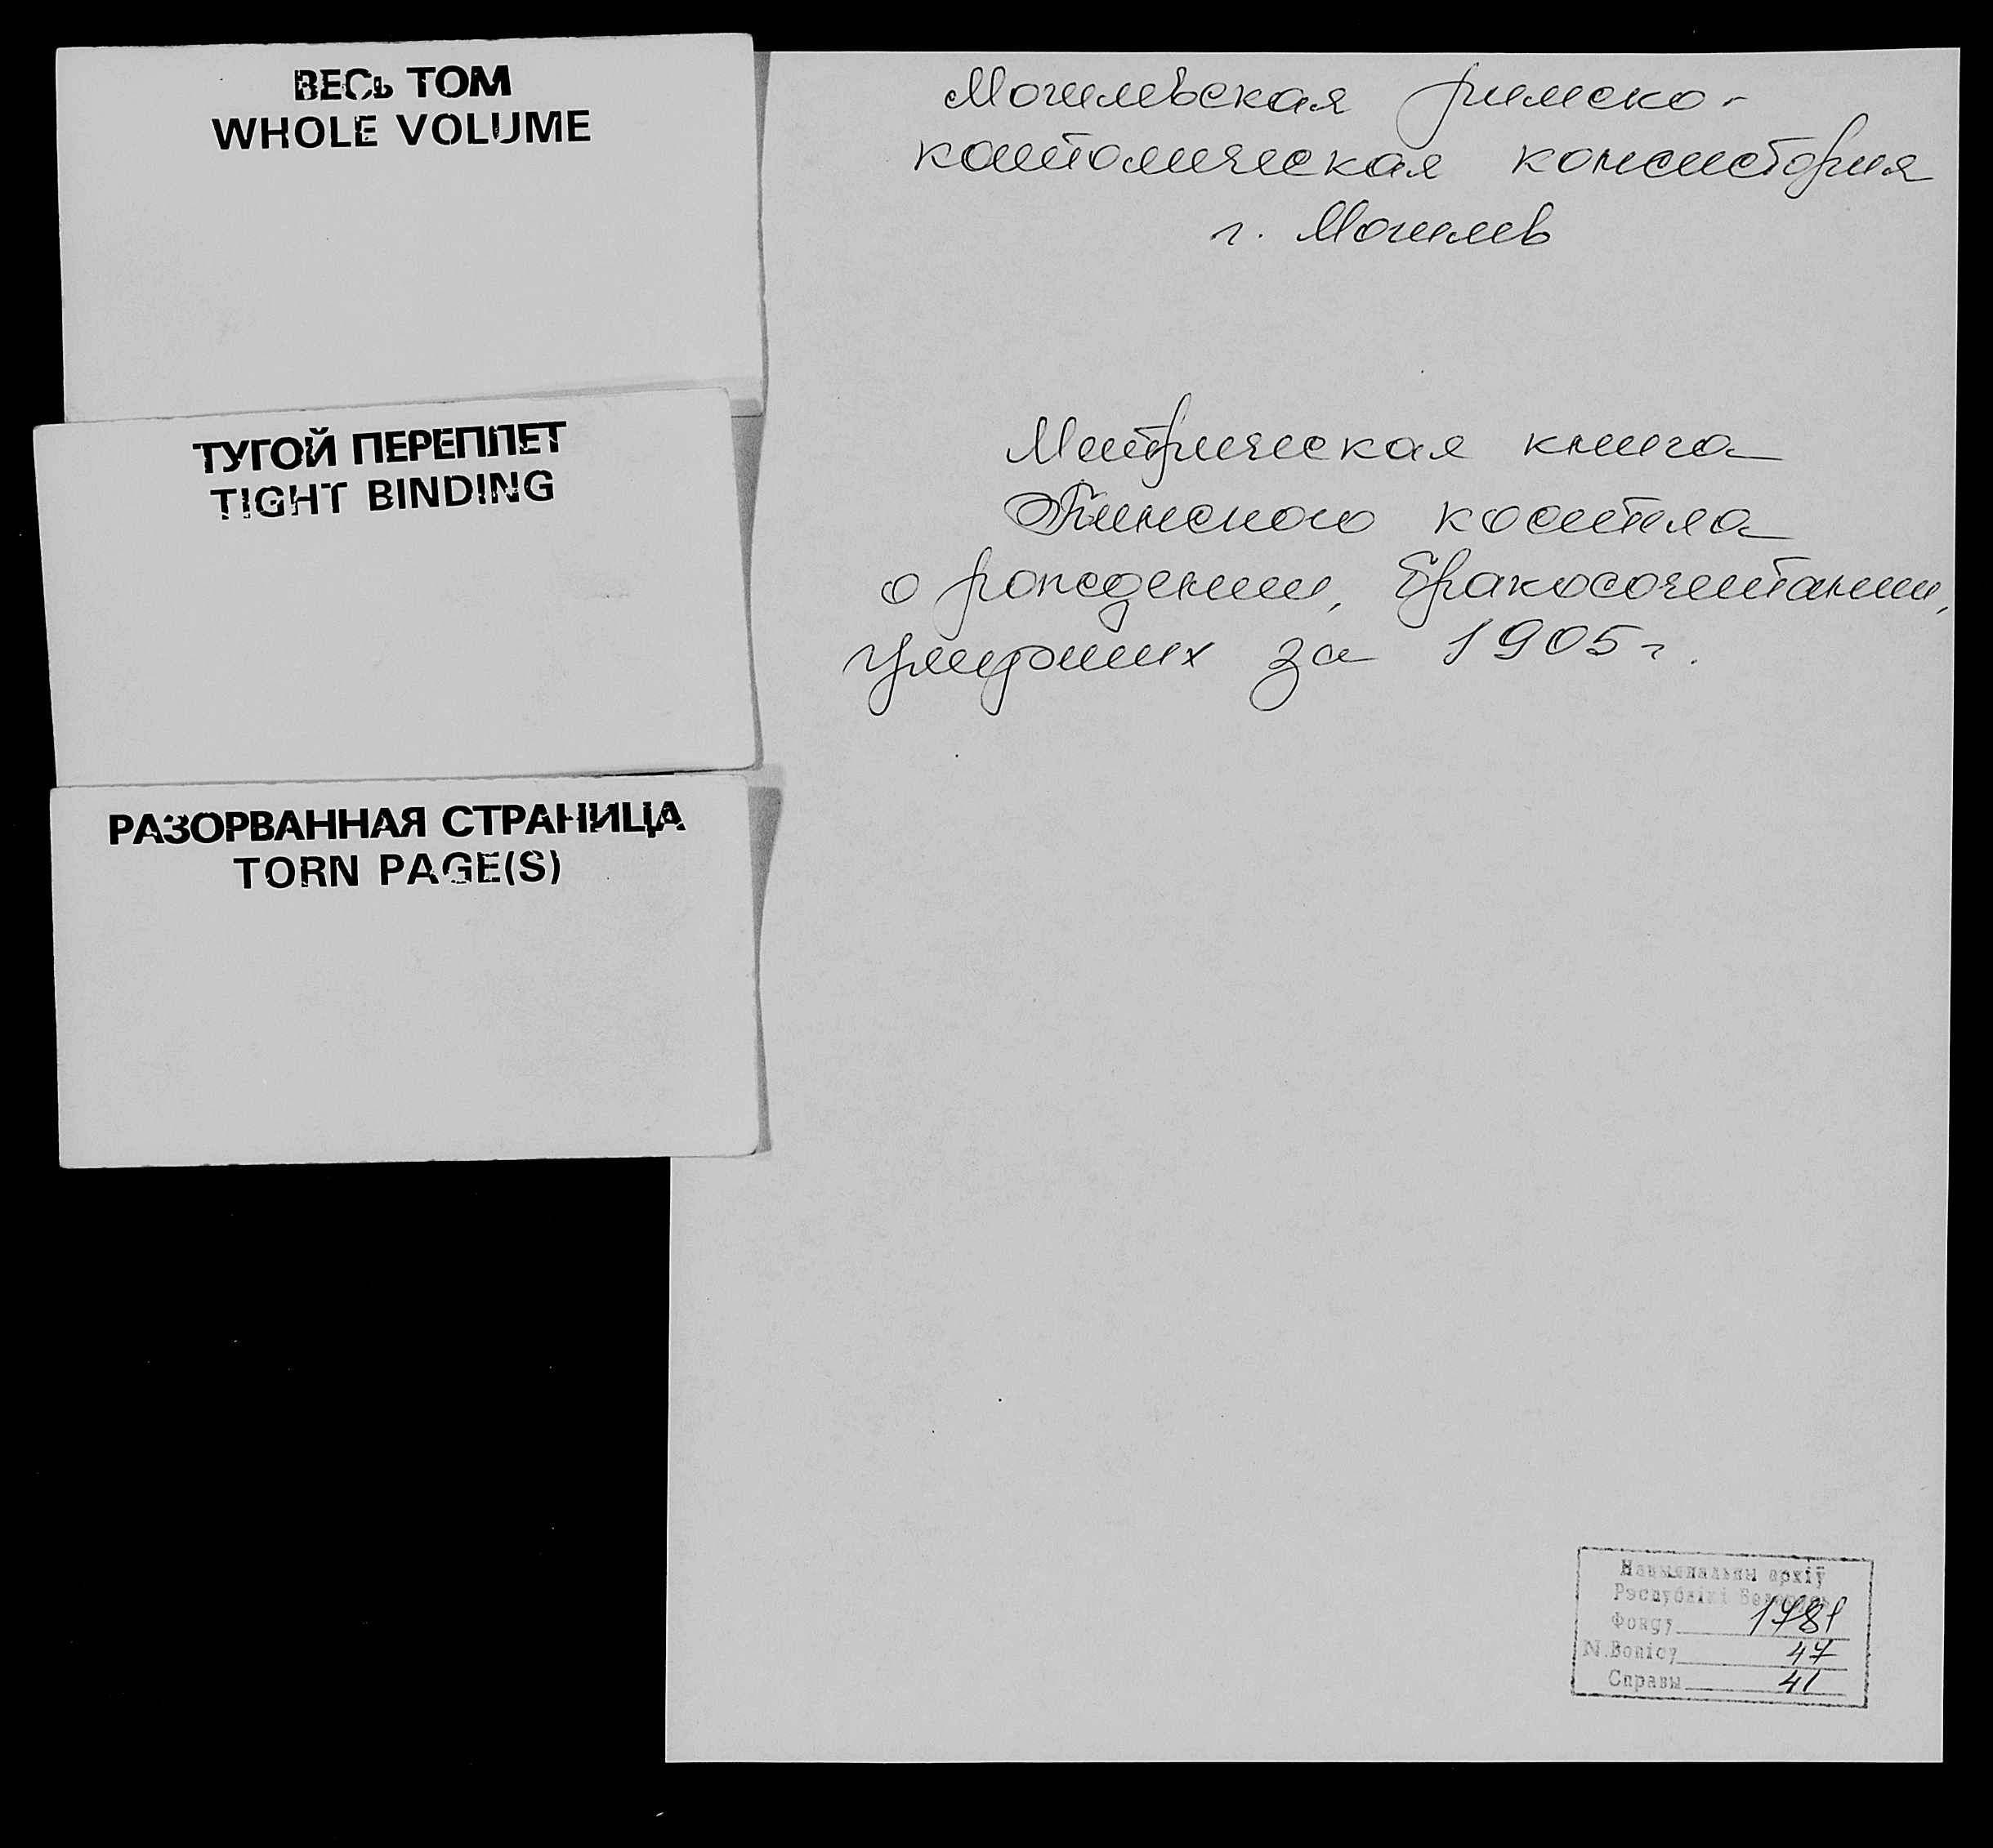 ВЕСЬ ТОМ
WHOLE VOLUME
ТУГОЙ ПЕРЕПЛЕТ
TIGHT BINDING
РАЗОРВАННАЯ СТРАНИЦА
TORN PAGE(S)
Могилевская римско-
католическая консистория
г. Могилев
Метрическая книга
костела
о рождении, бракосочетании,
умерших за 1905 г.
Нацыянальны архіў
Рэспублікі Беларусь
Фонду 1781
N. Вопісу 47
Справы 41